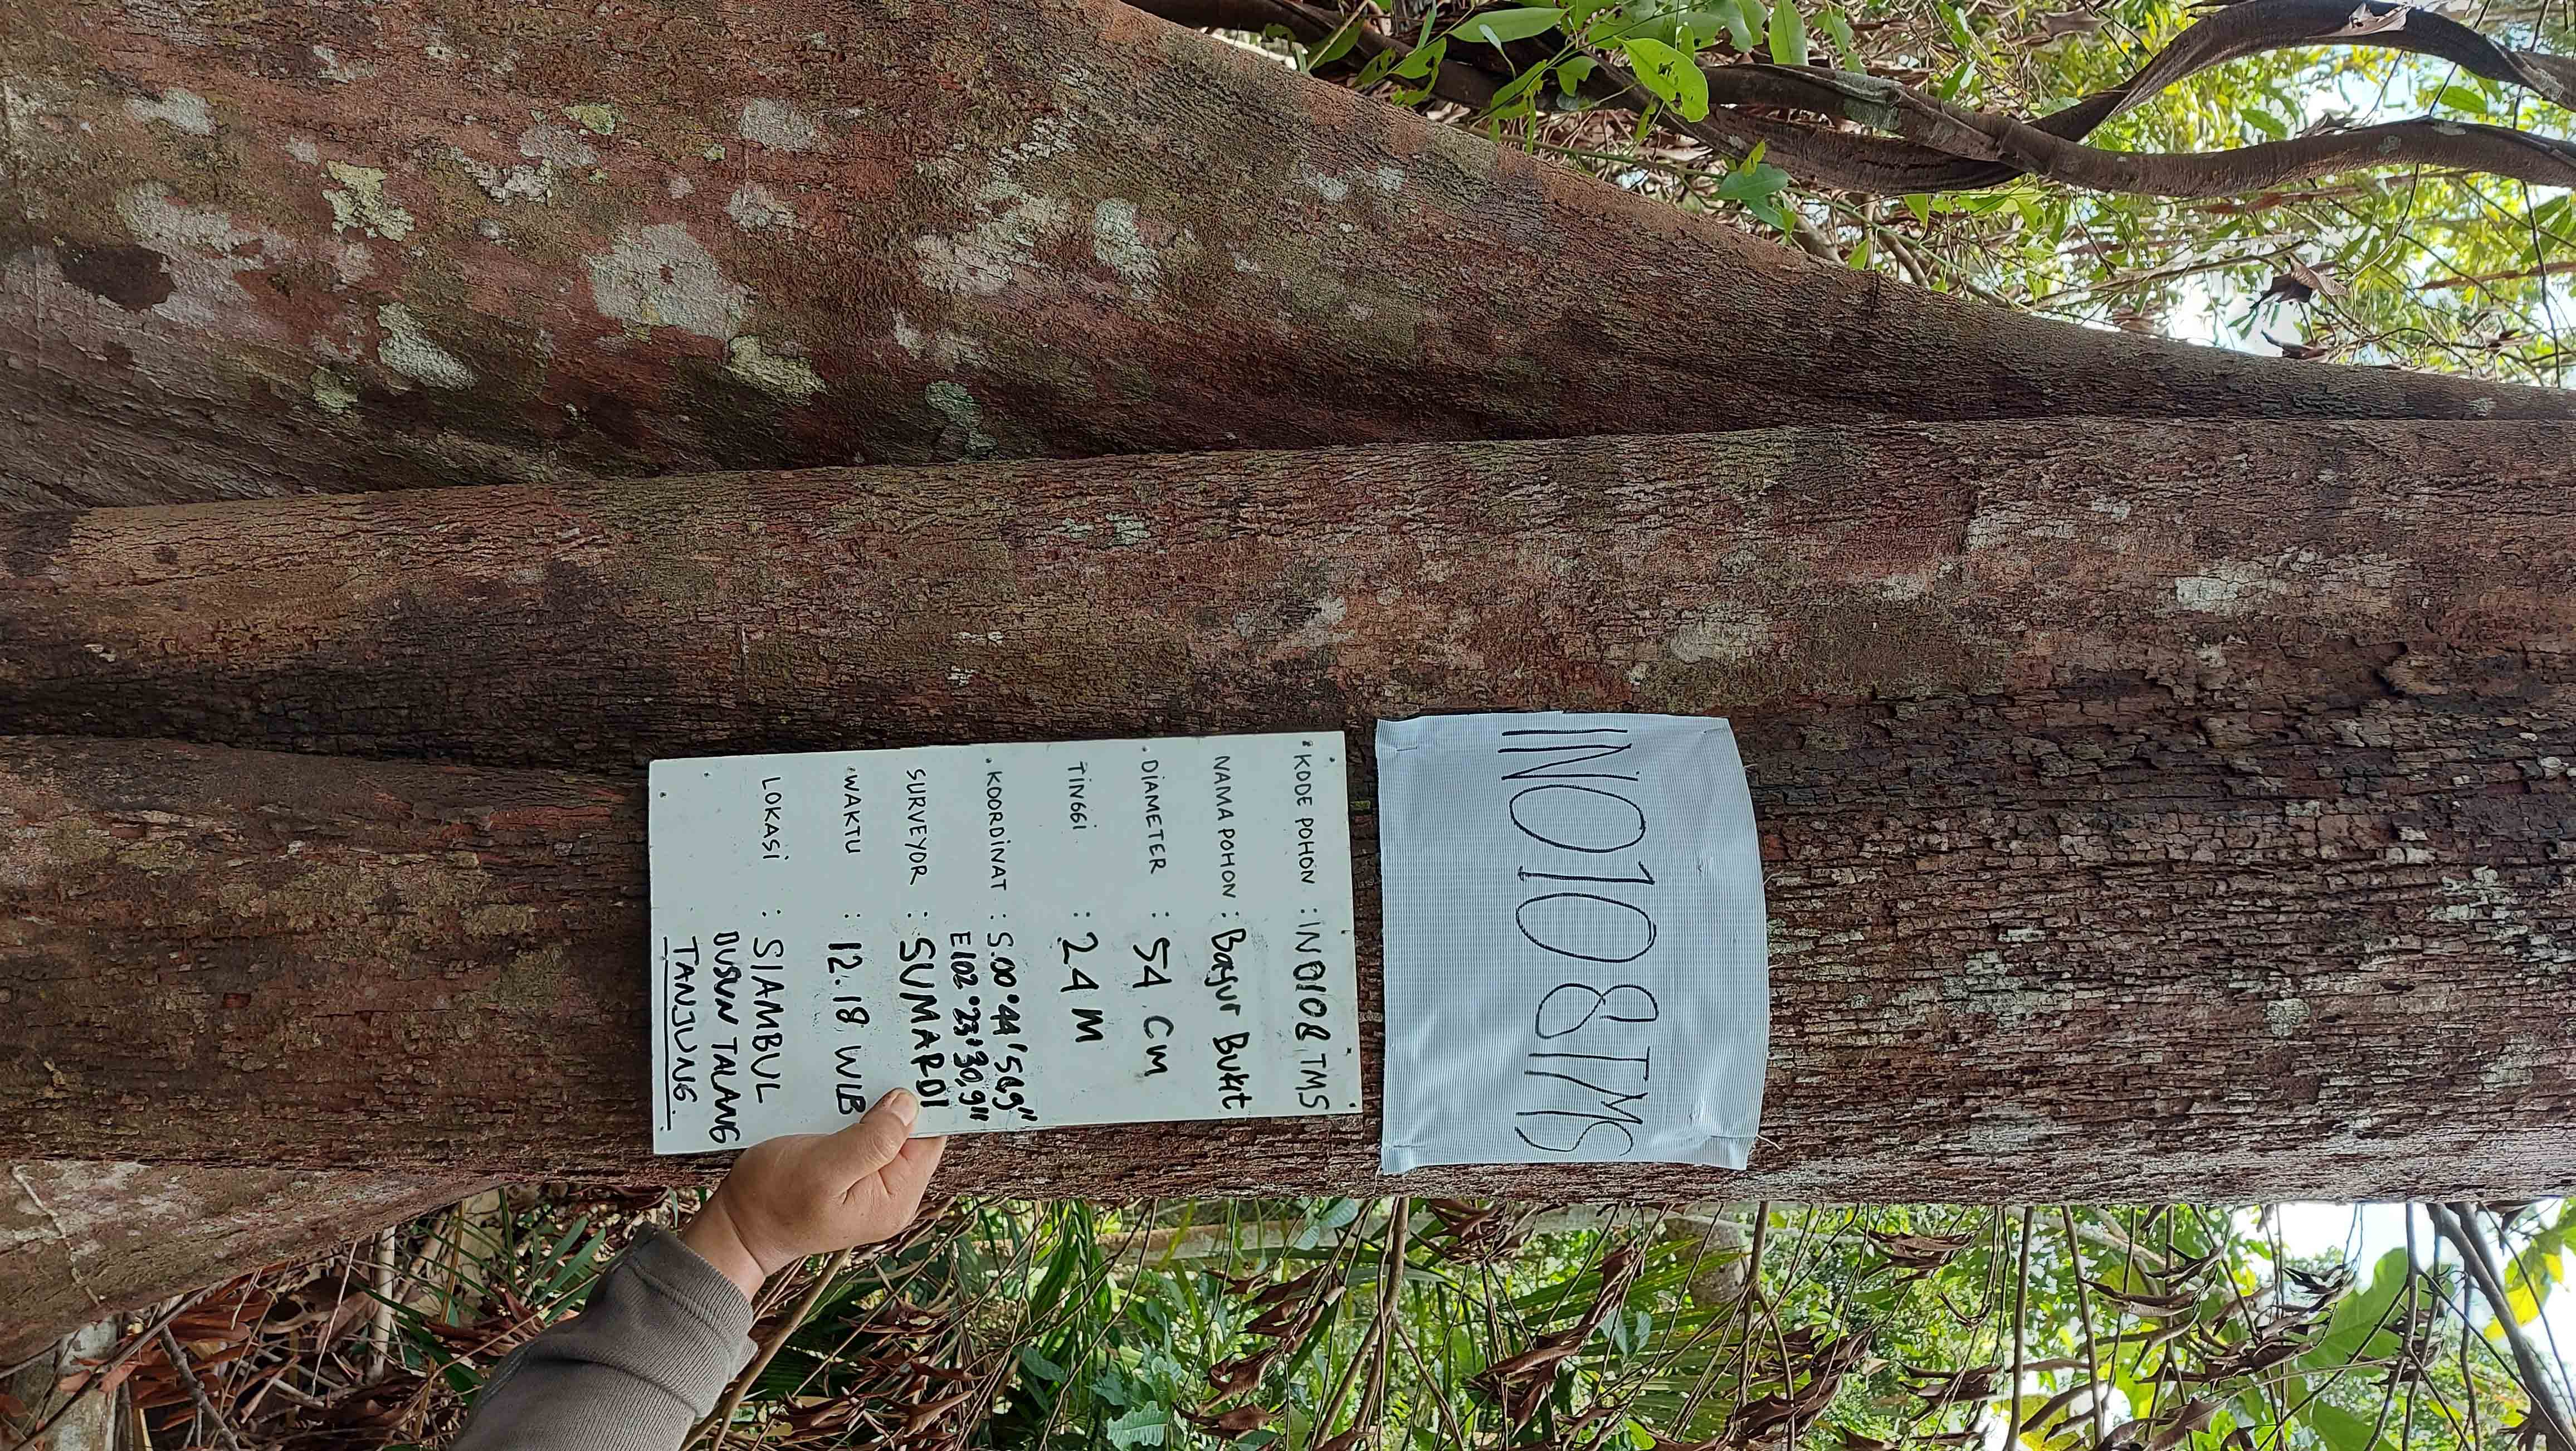 IN0108TMS
KODE POHON : IN0108 TMS
NAMA POHON : Bayur Bukit
DIAMETER : 54 CM
TINGGI : 24 M
KOORDINAT : S.00°44'56,9"
E102°23'30,9"
SURVEYOR : SUMARDI
WAKTU : 12.18 WIB
LOKASI : SIAMBUL
DUSUN TALANG
TANJUNG.